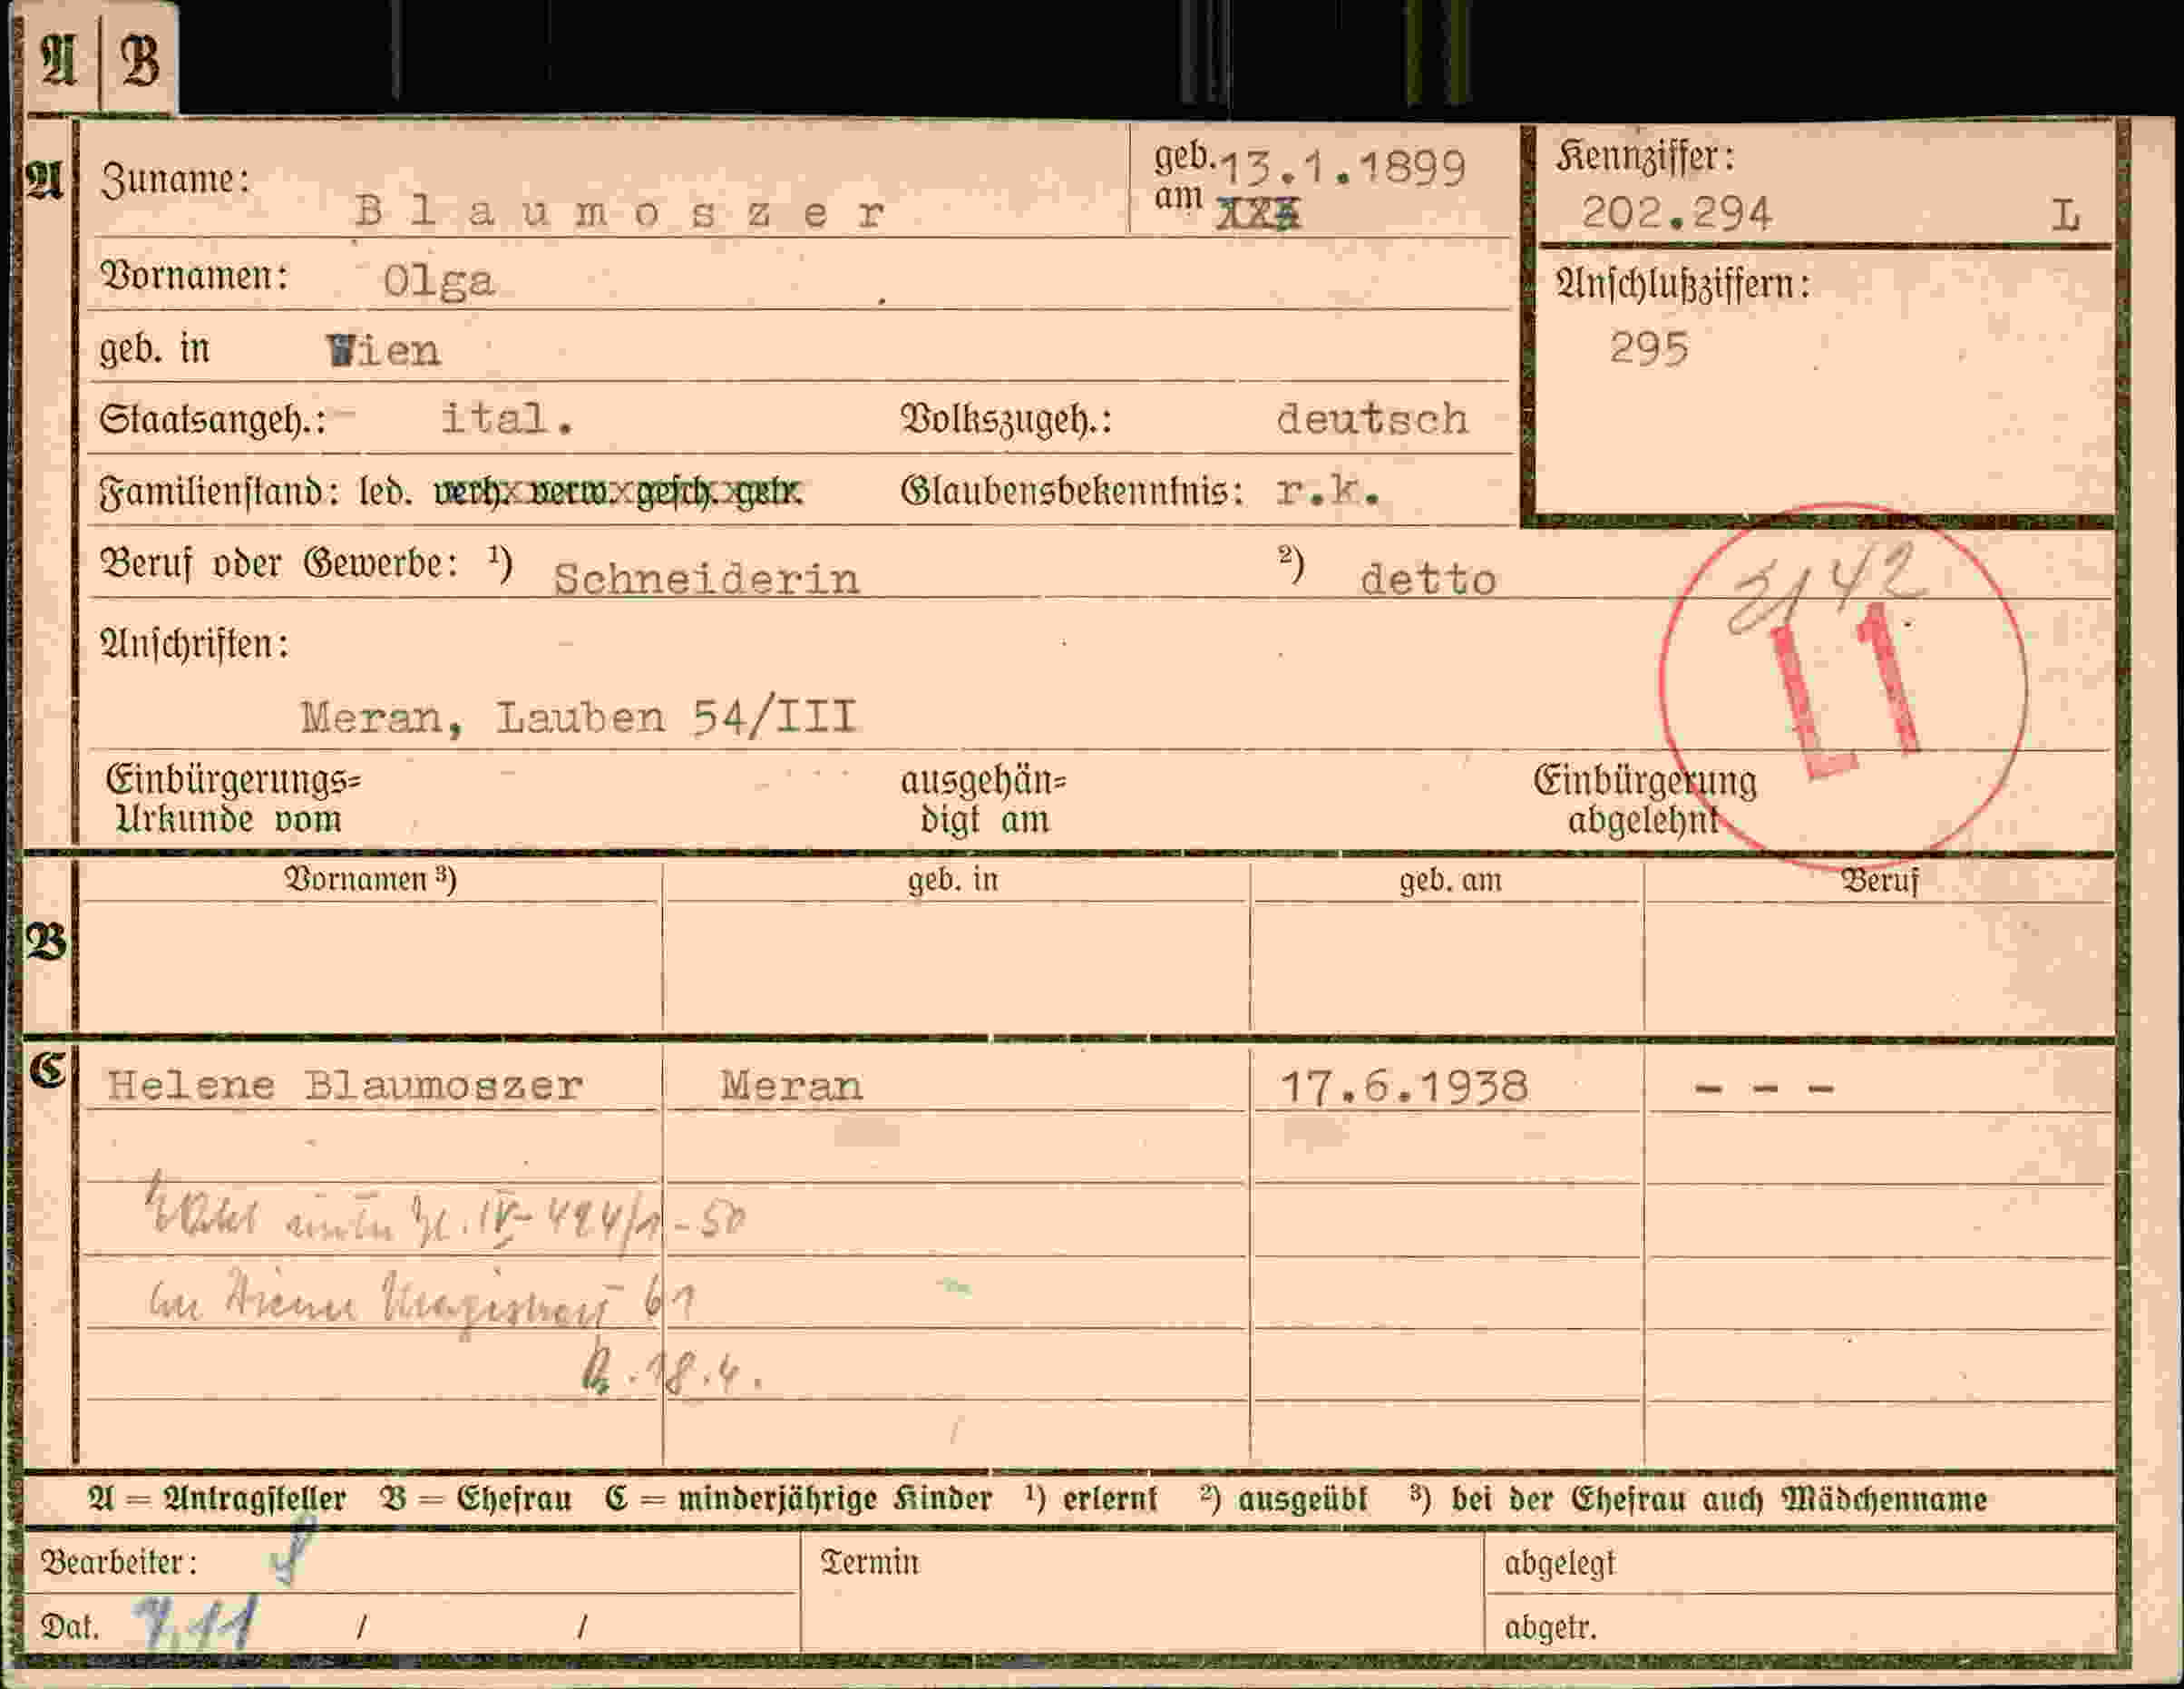 A B
A Zuname: Blaumoszer geb. am 13.1.1899 Kennziffer: 202.294 L
Vornamen: Olga Anschlußziffern: 295
geb. in Wien
Staatsangeh.: ital. Volkszugeh.: deutsch
Familienstand: led. verh. verw. gesch. getr. Glaubensbekenntnis: r.k.
Beruf oder Gewerbe: ¹) Schneiderin ²) detto
2142
L1
Anschriften:
Meran, Lauben 54/III
Einbürgerungs= ausgehän= Einbürgerung
Urkunde vom digt am abgelehnt
Vornamen ³) geb. in geb. am Beruf
B
C Helene Blaumoszer Meran 17.6.1938 - - -
unter Zl. IV-424/1-50
Wiener Magistrat 61
18.4.
A = Antragsteller B = Ehefrau C = minderjährige Kinder ¹) erlernt ²) ausgeübt ³) bei der Ehefrau auch Mädchenname
Bearbeiter: Termin abgelegt
Dat. 7.11 / / abgetr.